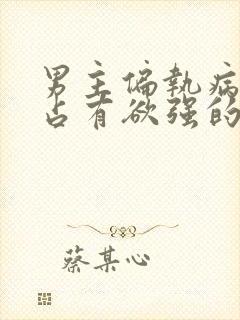 男主偏执病
占有欲强的
蔡某心